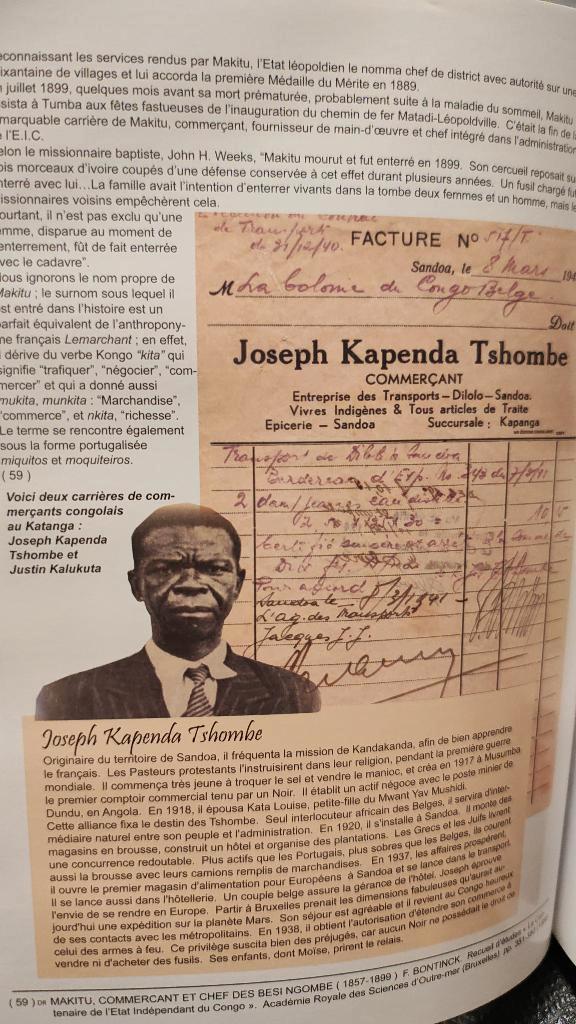 econnaissant les services rendus par Makitu, l'Etat léopoldien le nomma chef de district avec autorité sur une
ixantaine de villages et lui accorda la première Médaille du Mérite en 1889.
n juillet 1899, quelques mois avant sa mort prématurée, probablement suite à la maladie du sommeil, Makitu
sista à Tumba aux fêtes fastueuses de l'inauguration du chemin de fer Matadi-Léopoldville. C'était la fin de la
marquable carrière de Makitu, commerçant, fournisseur de main-d'œuvre et chef intégré dans l'administration
e l'E.I.C.
elon le missionnaire baptiste, John H. Weeks, "Makitu mourut et fut enterré en 1899. Son cercueil reposait su
ois morceaux d'ivoire coupés d'une défense conservée à cet effet durant plusieurs années. Un fusil chargé fut
nterré avec lui...La famille avait l'intention d'enterrer vivants dans la tombe deux femmes et un homme, mais le
issionnaires voisins empêchèrent cela.
ourtant, il n'est pas exclu qu'une
emme, disparue au moment de
'enterrement, fût de fait enterrée
vec le cadavre".
ous ignorons le nom propre de
Makitu ; le surnom sous lequel il
st entré dans l'histoire est un
arfait équivalent de l'anthropony-
me français Lemarchant ; en effet,
dérive du verbe Kongo "kita" qui
signifie "trafiquer", "négocier", "com-
mercer" et qui a donné aussi
mukita, munkita : "Marchandise",
"commerce", et nkita, "richesse".
Le terme se rencontre également
sous la forme portugalisée
miquitos et moquiteiros.
( 59 )
Voici deux carrières de com-
merçants congolais
au Katanga :
Joseph Kapenda
Tshombe et
Justin Kalukuta
de Transport
du 31/12/40.
FACTURE No 517/T.
Sandoa, le 8 Mars 194
M La Colonie du Congo Belge.
Doit
Joseph Kapenda Tshombe
COMMERÇANT
Entreprise des Transports – Dilolo – Sandoa.
Vivres Indigènes & Tous articles de Traite
Epicerie – Sandoa Succursale : Kapanga
Transport de Dilolo à Sandoa
Pour accord
Sandoa le 8/3/1941
L'ag. des Transports
Jacques J. J.
Joseph Kapenda Tshombe
Originaire du territoire de Sandoa, il fréquenta la mission de Kandakanda, afin de bien apprendre
le français. Les Pasteurs protestants l'instruisirent dans leur religion, pendant la première guerre
mondiale. Il commença très jeune à troquer le sel et vendre le manioc, et créa en 1917 à Musumba
le premier comptoir commercial tenu par un Noir. Il établit un actif négoce avec le poste minier de
Dundu, en Angola. En 1918, il épousa Kata Louise, petite-fille du Mwant Yav Mushidi.
Cette alliance fixa le destin des Tshombe. Seul interlocuteur africain des Belges, il servira d'inter-
médiaire naturel entre son peuple et l'administration. En 1920, il s'installe à Sandoa. Il monte des
magasins en brousse, construit un hôtel et organise des plantations. Les Grecs et les Juifs livrent
une concurrence redoutable. Plus actifs que les Portugais, plus sobres que les Belges, ils courent
aussi la brousse avec leurs camions remplis de marchandises. En 1937, les affaires prospèrent,
il ouvre le premier magasin d'alimentation pour Européens à Sandoa et se lance dans le transport.
Il se lance aussi dans l'hôtellerie. Un couple belge assure la gérance de l'hôtel. Joseph éprouve
l'envie de se rendre en Europe. Partir à Bruxelles prenait les dimensions fabuleuses qu'aurait au-
jourd'hui une expédition sur la planète Mars. Son séjour est agréable et il revient au Congo heureux
de ses contacts avec les métropolitains. En 1938, il obtient l'autorisation d'étendre son commerce à
celui des armes à feu. Ce privilège suscita bien des préjugés, car aucun Noir ne possédait le droit de
vendre ni d'acheter des fusils. Ses enfants, dont Moïse, prirent le relais.
( 59 ) DR MAKITU, COMMERCANT ET CHEF DES BESI NGOMBE ( 1857-1899 ) F. BONTINCK Recueil d'études « Le Cen
tenaire de l'Etat Indépendant du Congo ». Académie Royale des Sciences d'Outre-mer (Bruxelles)